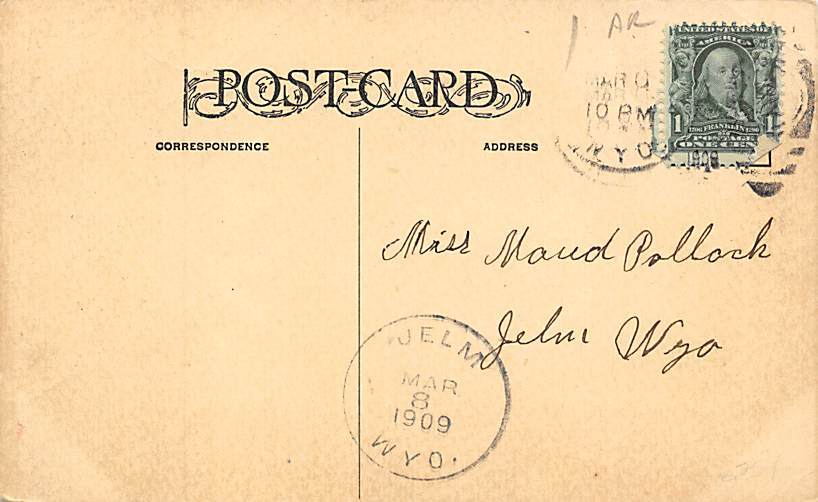 1 AR
UNITED STATES OF
AMERICA
MAR
10 PM
WYO
1909
1 1706 FRANKLIN 1790 1
POSTAGE
ONE CENT
POST-CARD
CORRESPONDENCE
ADDRESS
Miss Maud Pollock
Jelm Wyo
JELM
MAR
8
1909
WYO.